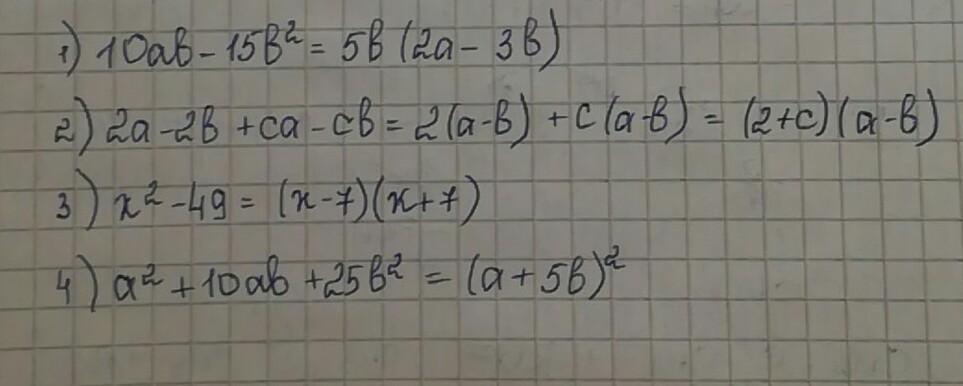 1) 10ab - 15b² = 5b (2a - 3b)
2) 2a - 2b + ca - cb = 2(a-b) + c(a-b) = (2+c)(a-b)
3) x² - 49 = (x-7)(x+7)
4) a² + 10ab + 25b² = (a + 5b)²